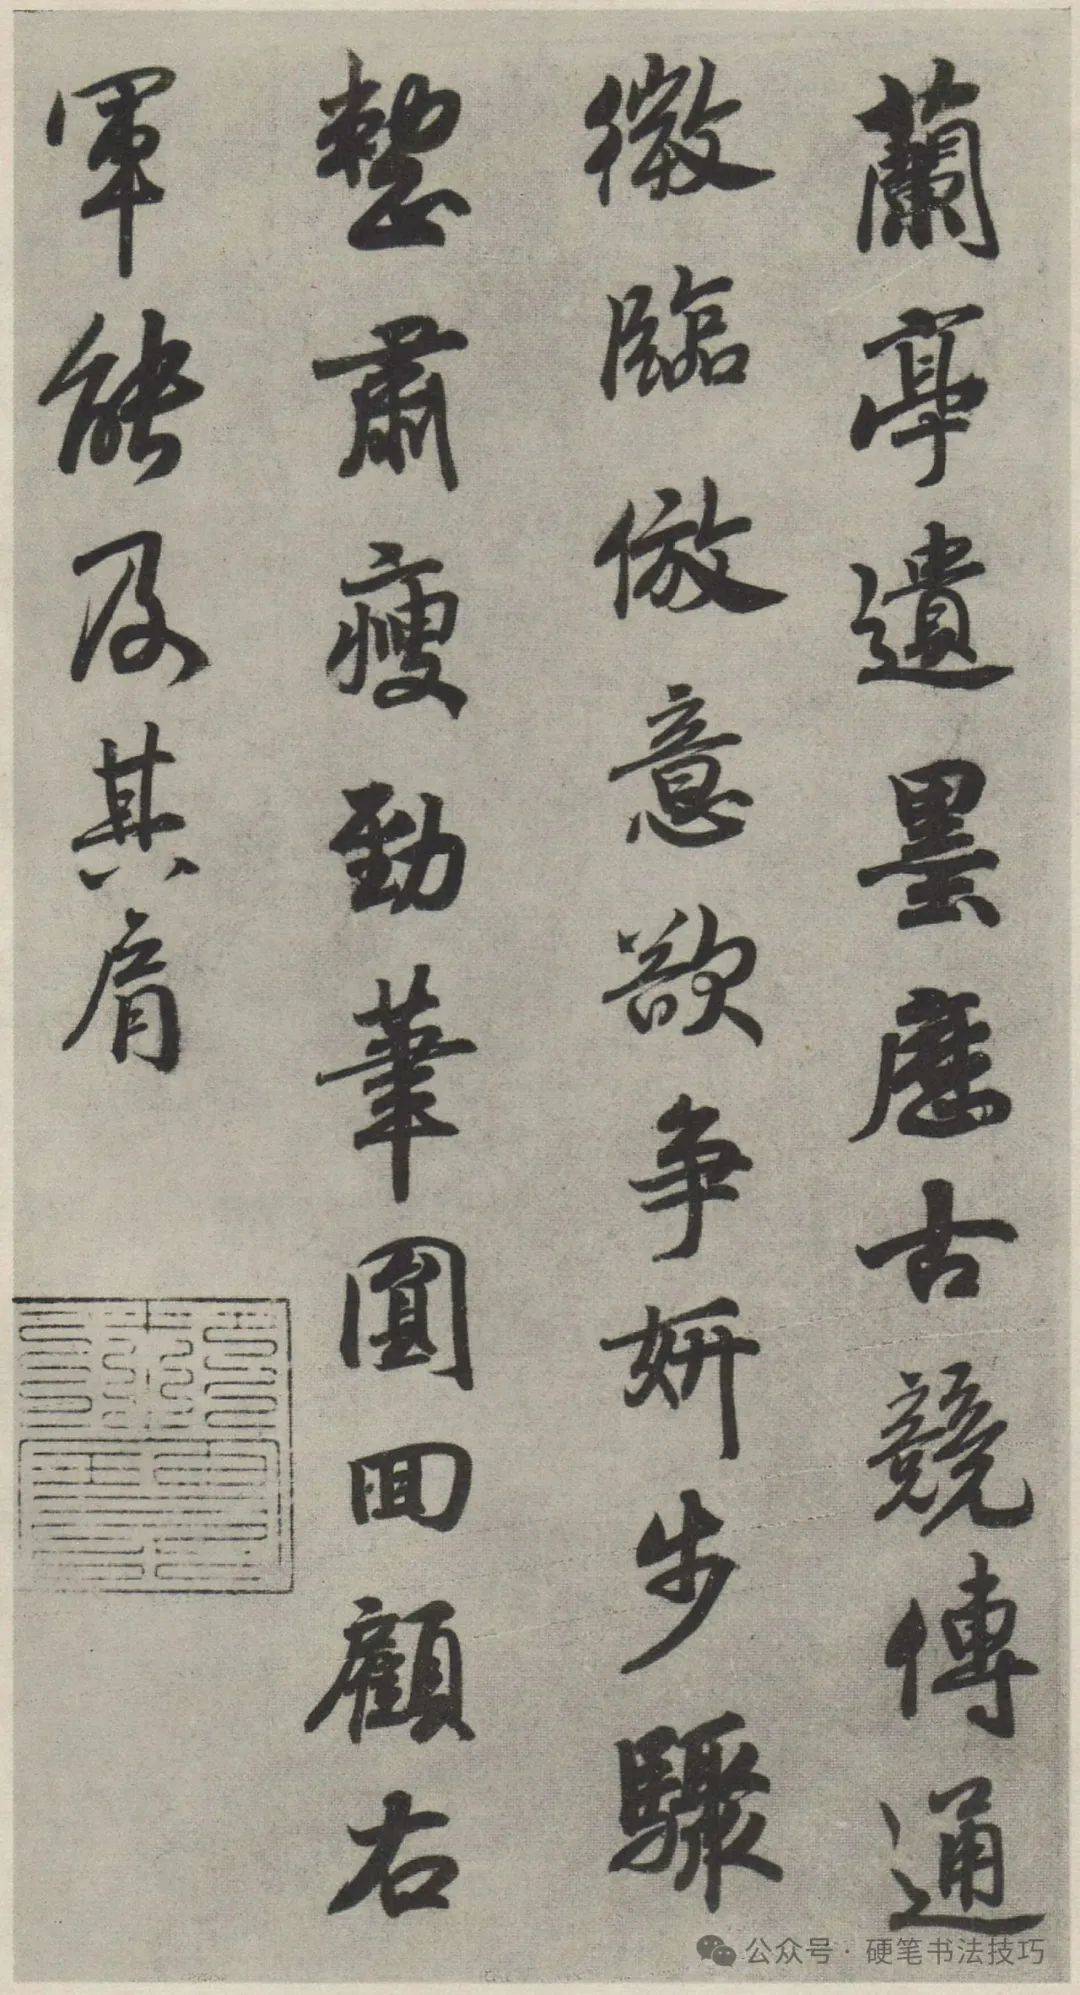 蘭亭遺墨歷古競傳通
微臨倣意欲争妍步驟
整肅瘦勁筆圓回顧右
軍能及其肩
公众号·硬笔书法技巧